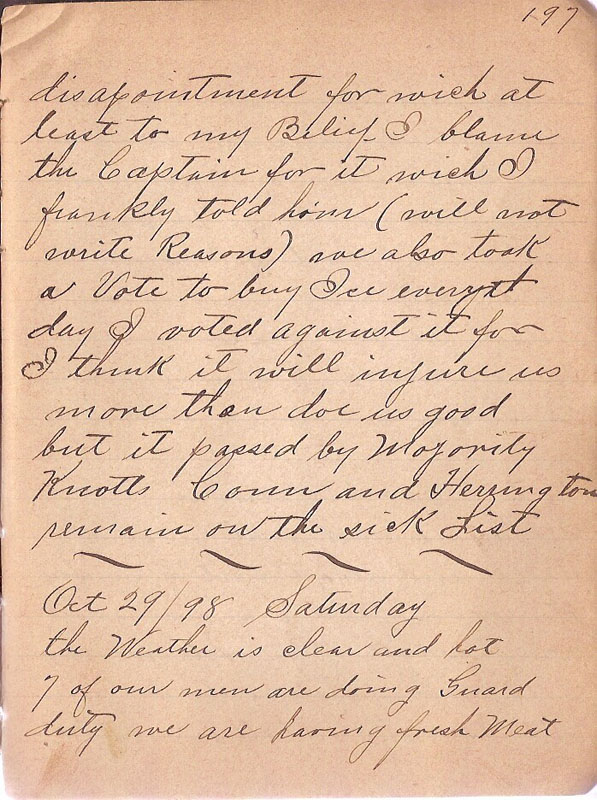 197
disapointment for wich at
least to my Belief I blame
the Captain for it wich I
frankly told him (will not
write Reasons) we also took
a Vote to buy Ice everyt
day I voted against it for
I think it will injure us
more than doe us good
but it passed by Mojority
Knotts Conn and Herrington
remain on the sick List
Oct 29/98 Saturday
the Weather is clear and hot
7 of our men are doing Guard
duty we are having fresh Meat